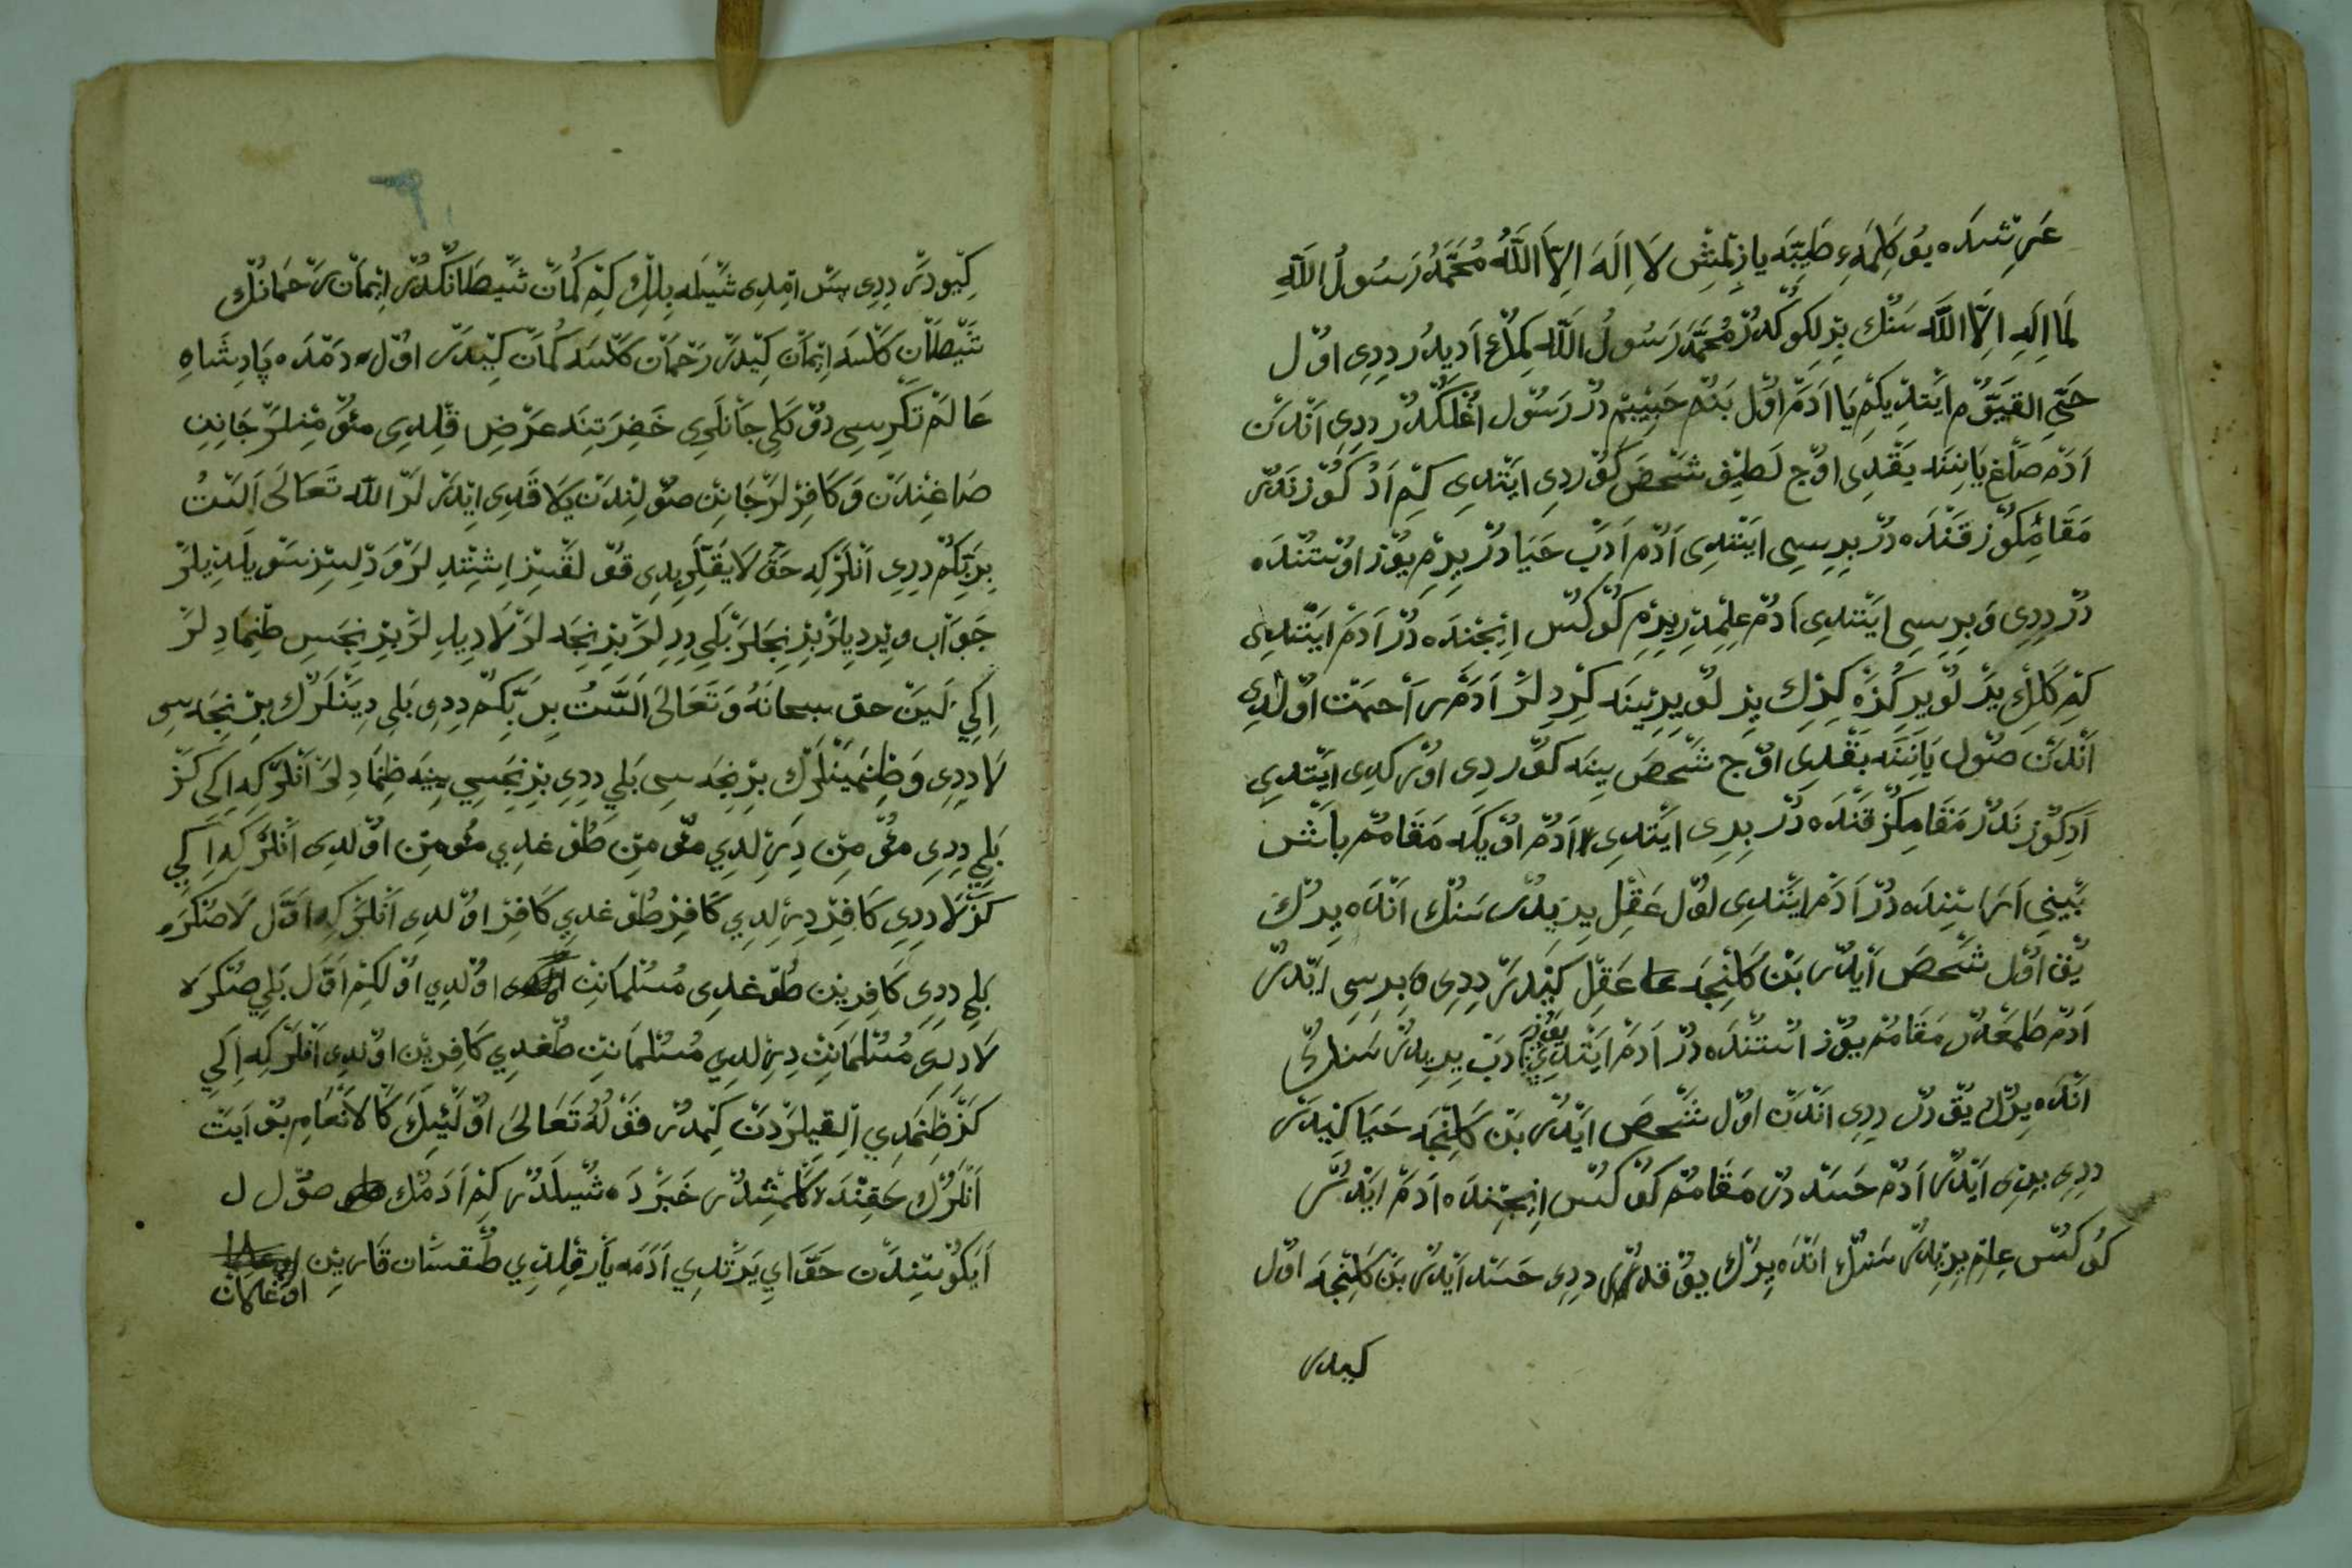 عَرِشْدَه بُو كَلِمَهءِ طَيِّبَه يَازِلْمِشْ لَا اِلَهَ اِلَّا اللَّهُ مُحَمَّدٌ رَسُولُ اللَّهِ
لَا اِلَهِ اِلَّا اللَّه سَنُڭ بِرْلِكُوڭدُرْ مُحَمَّدْ رَسُولُ اللَّه كِمُڭ اَدِيدُر دِدِى اوُل
حَيِّ القَيّوُم اَيْتدِيكِمْ يَا اَدَمْ اوُل بَنُمْ حَبِيبِمْ دُرْ رَسُول اُغْلُڭدُرْ دِدِى اَنْدَنْ
اَدَمْ صَاغْ يَانِنَه بَقْدِى اوُچ لَطِيف شَخَصْ كَوُردِى اَيْتدِى كِمْ اَدُڭُوز نَدُرْ
مَقَامِڭُوز قَنْدَه دُرْ بِرِيسِى اَيْتدِى اَدُم اَدَبْ حَيَا دُرْ يِرِمْ يُوز اوُسْتُنْدَه
دُرْ دِدِى وَ بِرِيسِى اَيْتدِى اَدُمْ عِلِمْدِرْ يِرِمْ كُوكُسْ اِيچِنْدَه دُرْ اَدَمْ اَيْتدِى
كِمْ كَلِڭ يِرْلُو يِرِڭُزَه كِرِڭ يِرْلُو يِرِينَه كِرْدِلَرْ اَدَمْ رَحمَتْ اوُلْدِى
اَنْدَنْ صُول يَانِنَه بَقْدِى اوُچ شَخَصْ يِنَه كَوُردِى اوُركدِى اَيْتدِى
اَدِڭُوز نَدُرْ مَقَامِڭُز قَنْدَه دُرْ بِرِى اَيْتدِى اَدُمْ اوُيكَه مَقَامُمْ بَاشْ
بَيْنِى اَرَاسِنْدَه دُرْ اَدَمْ اَيْتدِى اوُل عَقِلْ يِرِيدُرْ سَنُڭ اَنْدَه يِرُڭ
يُق اوُل شَخَصْ اَيْدُرْ بَنْ كَلِنْجَه عَقِلْ كِيْدَرْ دِدِى وَ بِرِسِى اَيْدُرْ
اَدُمْ طَمَعْدُرْ مَقَامُمْ يُوز اُسْتُنْدَه دُرْ اَدَمْ اَيْتدِى يُوز اَدَبْ يِرِيدُرْ سَنُڭ
اَنْدَه يِرُڭ يُق دُرْ دِدِى اَنْدَنْ اوُل شَخَصْ اَيْدُرْ بَنْ كَلِنْجَه حَيَا كِيْدَرْ
دِدِى بِرِى اَيْدُرْ اَدُمْ حَسَد دُرْ مَقَامُمْ كُوكُسْ اِيچِنْدَه اَدَمْ اَيْدُرْ
كُوكُسْ عِلِمْ يِرِيدُرْ سَنُڭ اَنْدَه يِرُڭ يُوقدُرْ دِدِى حَسَد اَيْدُرْ بَنْ كَلِنْجَه اوُل
كيدر
كِيْدَرْ دِدِى پَسْ اِمْدِى شُيْلَه بِلِڭ كِمْ كُمَانْ شَيْطَانُڭدُرْ اِيْمَانْ رَحْمَانُڭ
شَيْطَانْ كَلْسَه اِيْمَانْ كِيْدَرْ رَحْمَانْ كَلْسَه كُمَانْ كِيْدَرْ اوُل دَمْدَه پَادِشَاهِ
عَالَمْ تَڭرِسِى دُوكَلِى جَانلَرِى حَضِرَتِنَه عَرْضِ قِلْدِى مؤُمِنْلَرْ جَانِنِ
صَاغِنْدَنْ وَ كَافِرْلَرْ جَانِنْ صُولِنْدَنْ اللَّه تَعَالَى اَلَسْتُ
بِرَبِّكُمْ دِدِى اَنْلَرْكِه حَقْ قُولَقْسِزْ اِشِتْدِلَرْ وَ دِلسِزْ سُويلَدِيلَرْ
جَوَابْ وِيرْدِيلَرْ بِرْنِيجَلَرْ بَلِي دِدِلَرْ بِرْنِيجَه لَرْ لَا دِيدِلَرْ بِرْنِيجَسِ طِنْمَادِلَرْ
اِكِي لَيِنْ حق سبحانَهُ وَتَعَالَى اَلَسْتُ بِرَبِّكُمْ دِدِى بَلِي دِيَنْلَرُڭ بِرْنِيجَه سِى
لَا دِدِى وَ طِنْمَيَنْلَرُڭ بِرْنِيجَه سِى بَلِي دِدِى بِرْنِيجَسِي يِنَه طِنْمَادِلَرْ اَنْلَرْكِه اِكِي كَزْ
بَلِي دِدِى مؤُمِنْ دِرِلْدِي مؤُمِنْ طُوغدِي مؤُمِن اوُلْدِى اَنْلَرْكِه اِكِي
كَزْ لَا دِدِى كَافِرْ دِرِلْدِي كَافِرْ طُوغدِي كَافِرْ اوُلْدِى اَنْلَرْكِه اَوَّل لَا صُڭرَه
بَلِي دِدِى كَافِرِينْ طُوغدِى مُسُلْمَانِنْ اوُلْدِي اوُلكِمْ اَوَّل بَلِي صُڭرَه
لَا دِدِى مُسُلْمَانِنْ دِرِلْدِي مُسُلْمَانِنْ طُغدِي كَافِرِيْن اوُلْدِى اَنْلَرْكِه اِكِي
كَزْ طِنْمَدِي كِمْدُرْ قَوْلُهُ تَعَالَى اوُلَئِكَ كَالاَنْعَامِ بُو اَيَتْ
اَنْلَرُڭ حَقِنْدَه كَلْمِشْدُرْ خَبَرْدَه شُيْلَدُرْ كِمْ اَدَمُڭ صُول
اَيَكُوسِنْدَنْ حَوَّايِ يَرَتْدِي اَدَمَه يَارْ قِلْدِي طُقسَان قَارِيْن
اوغلان